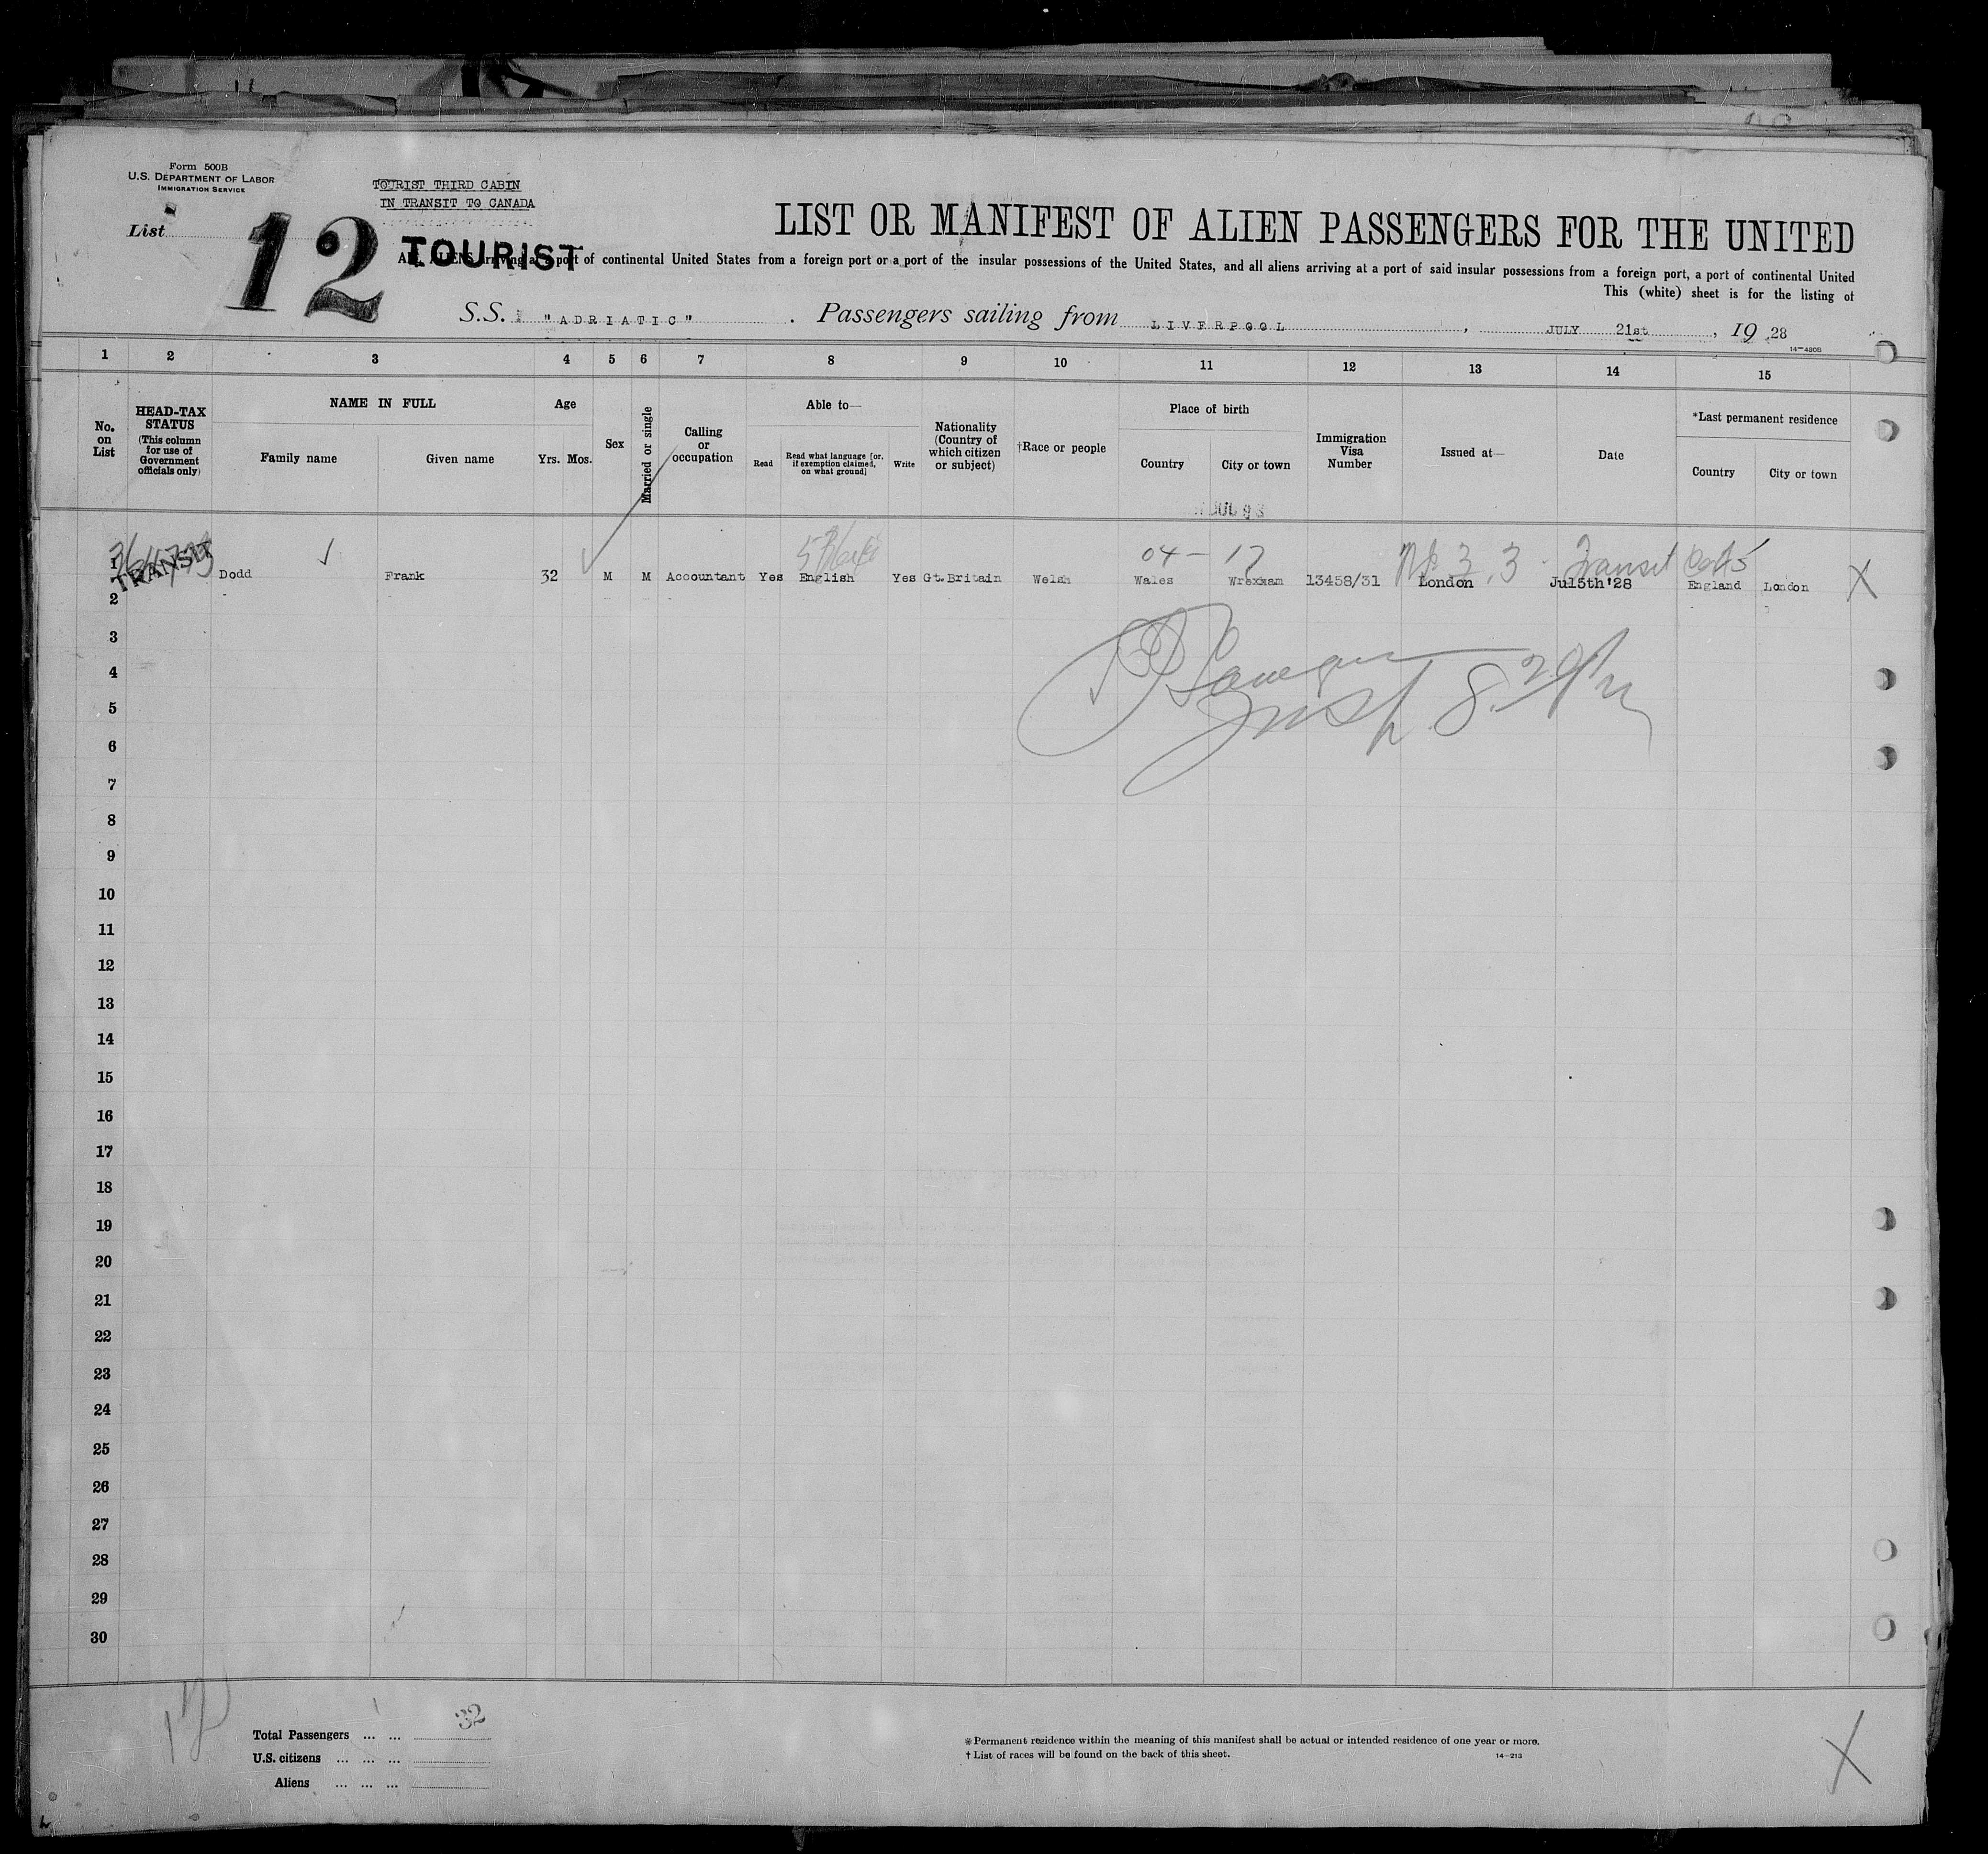 Form 500B
U.S. DEPARTMENT OF LABOR
IMMIGRATION SERVICE
TOURIST THIRD CABIN
IN TRANSIT TO CANADA
List 12
TOURIST
LIST OR MANIFEST OF ALIEN PASSENGERS FOR THE UNITED
ALL ALIENS arriving at a port of continental United States from a foreign port or a port of the insular possessions of the United States, and all aliens arriving at a port of said insular possessions from a foreign port, a port of continental United
This (white) sheet is for the listing of
S.S. "ADRIATIC" . Passengers sailing from LIVERPOOL , JULY 21st , 19 28
14-490B
1 2 3 4 5 6 7 8 9 10 11 12 13 14 15
No. on List
HEAD-TAX STATUS (This column for use of Government officials only)
NAME IN FULL
Family name Given name
Age
Yrs. Mos.
Sex
Married or single
Calling or occupation
Able to—
Read
Read what language [or, if exemption claimed, on what ground]
Write
Nationality (Country of which citizen or subject)
†Race or people
Place of birth
Country City or town
Immigration Visa Number
Issued at—
Date
*Last permanent residence
Country City or town
04 - 17 3.3 Transit
1 TRANSIT Dodd Frank 32 M M Accountant Yes English Yes Gt.Britain Welsh Wales Wrexxam 13458/31 London Jul5th'28 England London X
2
3
4
5
6
7
8
9
10
11
12
13
14
15
16
17
18
19
20
21
22
23
24
25
26
27
28
29
30
Total Passengers ... ... 32
U.S. citizens ... ... ...
Aliens ... ... ...
*Permanent residence within the meaning of this manifest shall be actual or intended residence of one year or more.
† List of races will be found on the back of this sheet.
14-213
X